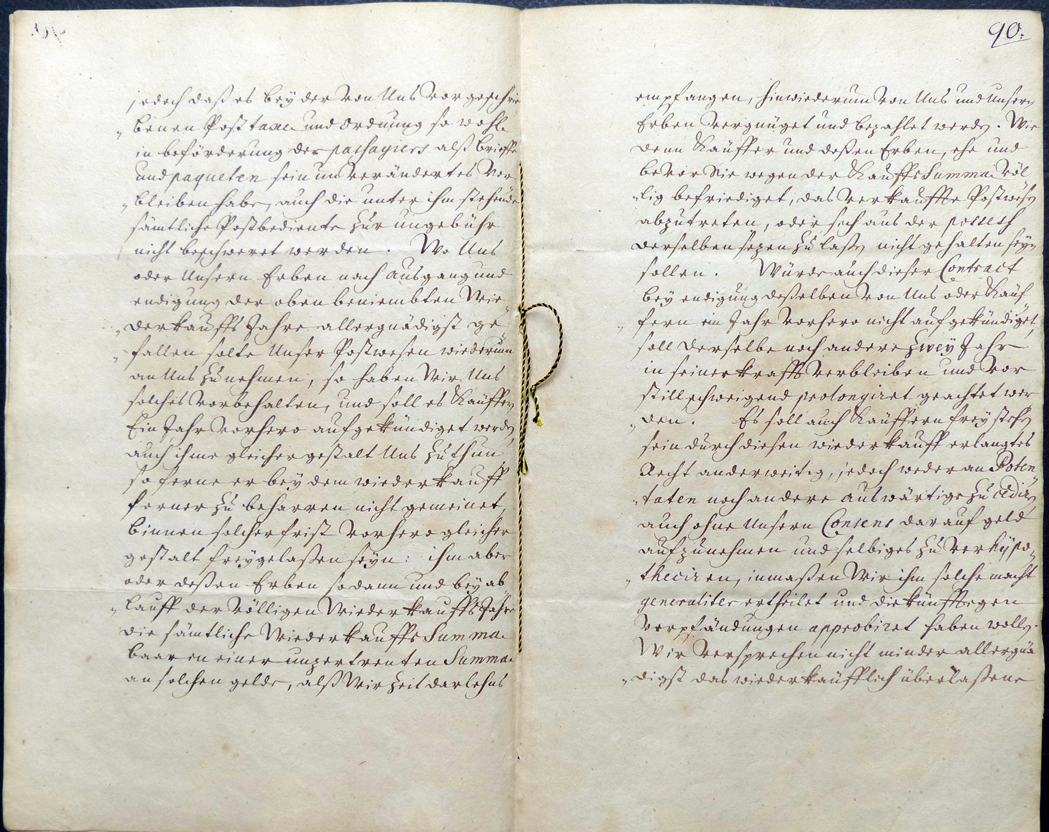 jedoch daß es bey der von Uns vorgeschrie
benen Posttaxe und Ordnung so wohl
in beförderung der passagiers alß brieffe
und paqueten sein unverändertes Ver
bleiben habe, auch die unter ihm stehende
sämtliche Postbediente zur ungebühr
nicht beschweret werden. Wo Uns
oder Unsern Erben nach Ausgang und
endigung der oben beniembten Wie
derkauffs Jahre allergnädigst ge
fallen solte Unser Postwesen wiederum
an Uns zu nehmen, so haben Wir Uns
solches vorbehalten, und soll es Käuffern
Ein Jahr vorhero aufgekündiget werden,
auch ihme gleicher gestalt Uns zu thun
so ferne er bey dem wiederkauff
ferner zu beharren nicht gemeinet,
binnen solcher frist vorhero gleicher
gestalt freygelaßen seyn: ihm aber
oder deßen Erben sodann und bey ab
lauff der völligen Wiederkauffs Jahre
die sämtliche Wiederkauffs Summa
baar in einer unzertrenten Summa
an solchen gelde, alß Wir Zeit darlehns
90.
empfangen, hinwiederum von Uns und unsern
Erben vergnüget und bezahlet werden. Wie
denn Käuffer und deßen Erben, ehe und
bevor Sie wegen der Kauffs Summa völ
lig befriediget, das verkauffte Postwesen
abzutreten, oder sich aus der possess
derselben sezen zu laßen nicht gehalten seyn
sollen. Würde auch dieser Contract
bey endigung deßelben von Uns oder Käuf
fern ein Jahr vorhero nicht aufgekündiget,
soll derselbe noch andere zwey Jahr
in seiner krafft verbleiben und vor
stillschweigend prolongiret geachtet wer
den. Es soll auch Käuffern frey stehen
sein durch diesen wiederkauff erlangtes
Recht anderweitig, jedoch weder an Poten
taten noch andere auswärtige zu cediren
auch ohne Unsern Consens darauf geld
aufzunehmen und selbiges zu verhypo
theciren, inmaßen Wir ihm solche macht
generaliter ertheilet und die künfftigen
Verpfändungen approbiret haben wollen.
Wir versprechen nicht minder allergnä
digst das wiederkäufflich überlaßene